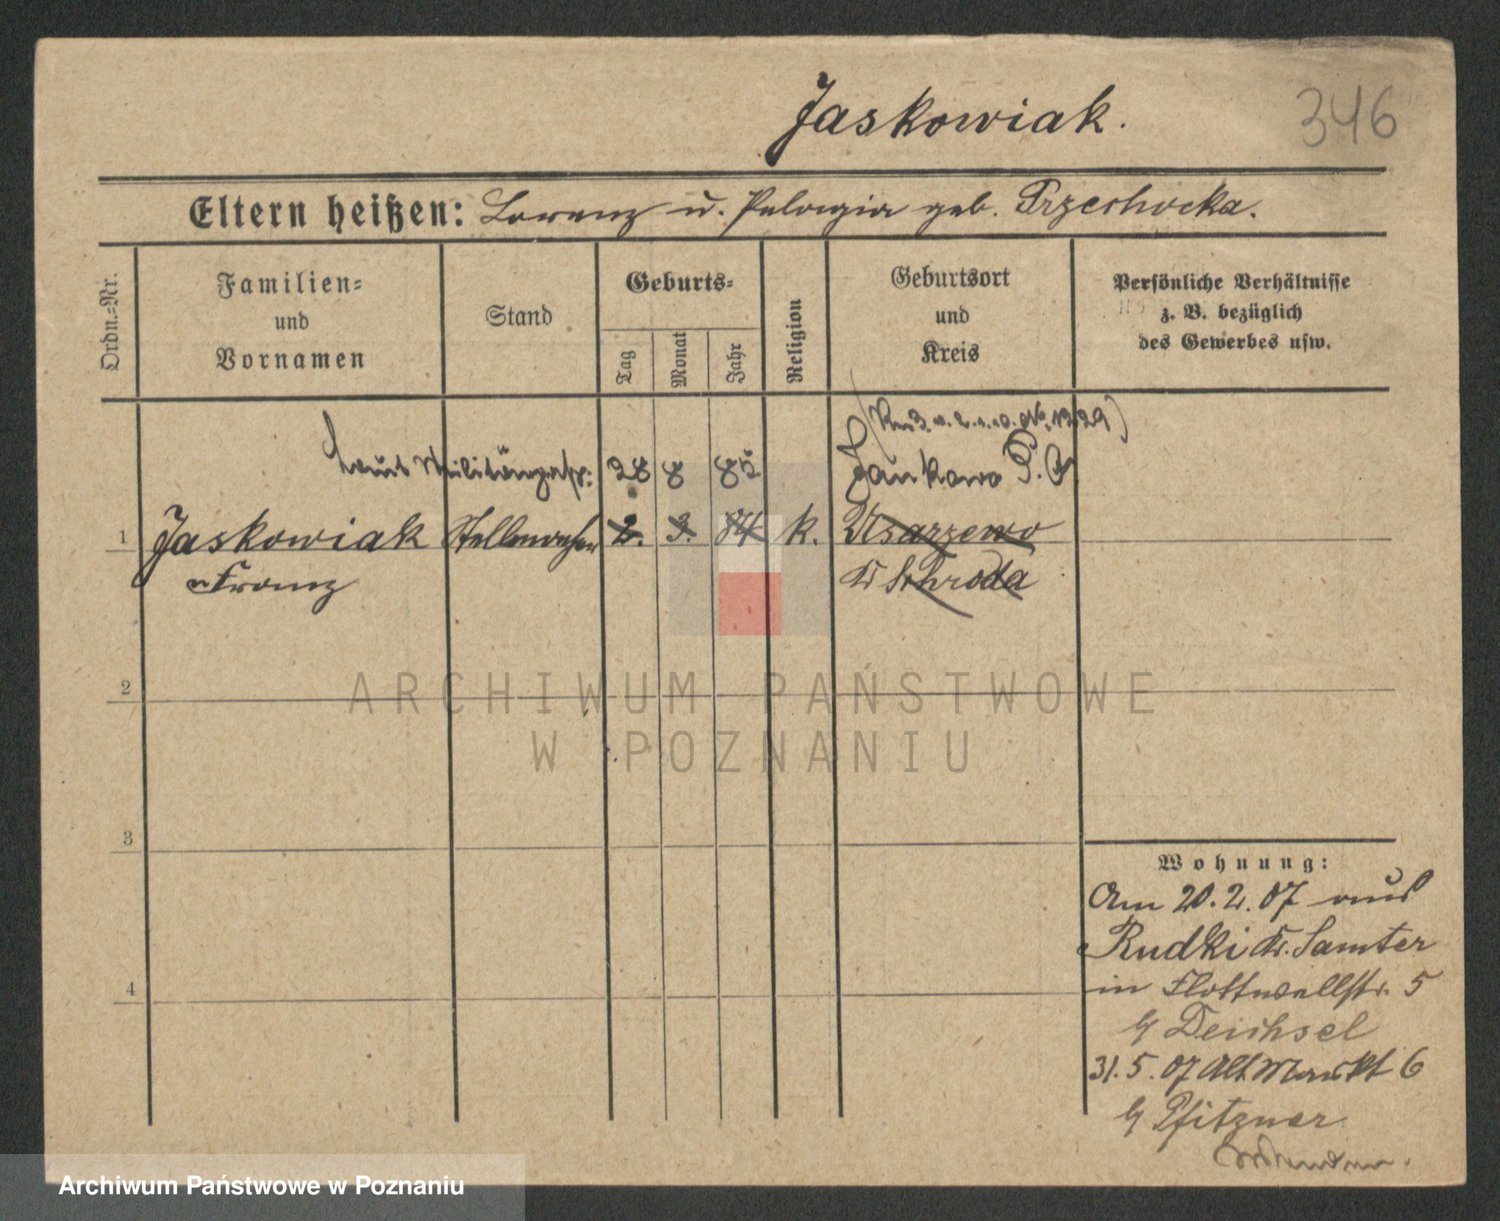 Jaskowiak.
346
Eltern heißen: Lorenz u. Pelagia geb. Przechocka.
Ordn.-Nr.
Familien-
und
Vornamen
Stand
Geburts-
Tag
Monat
Jahr
Religion
Geburtsort
und
Kreis
Persönliche Verhältnisse
z. B. bezüglich
des Gewerbes usw.
laut Militärpaß: 28 8 85 Jankowo P. O
1 Jaskowiak Stellmacher 2. 3. 84 k. Usarzewo
Franz Kr Schroda
2
3
4
Wohnung:
Am 20.2.07 aus
Rudki Kr. Samter
in Flottwellstr. 5
b/ Deichsel
31.5.07 Alt Markt 6
b/ Pfitzner
ARCHIWUM PAŃSTWOWE
W POZNANIU
Archiwum Państwowe w Poznaniu